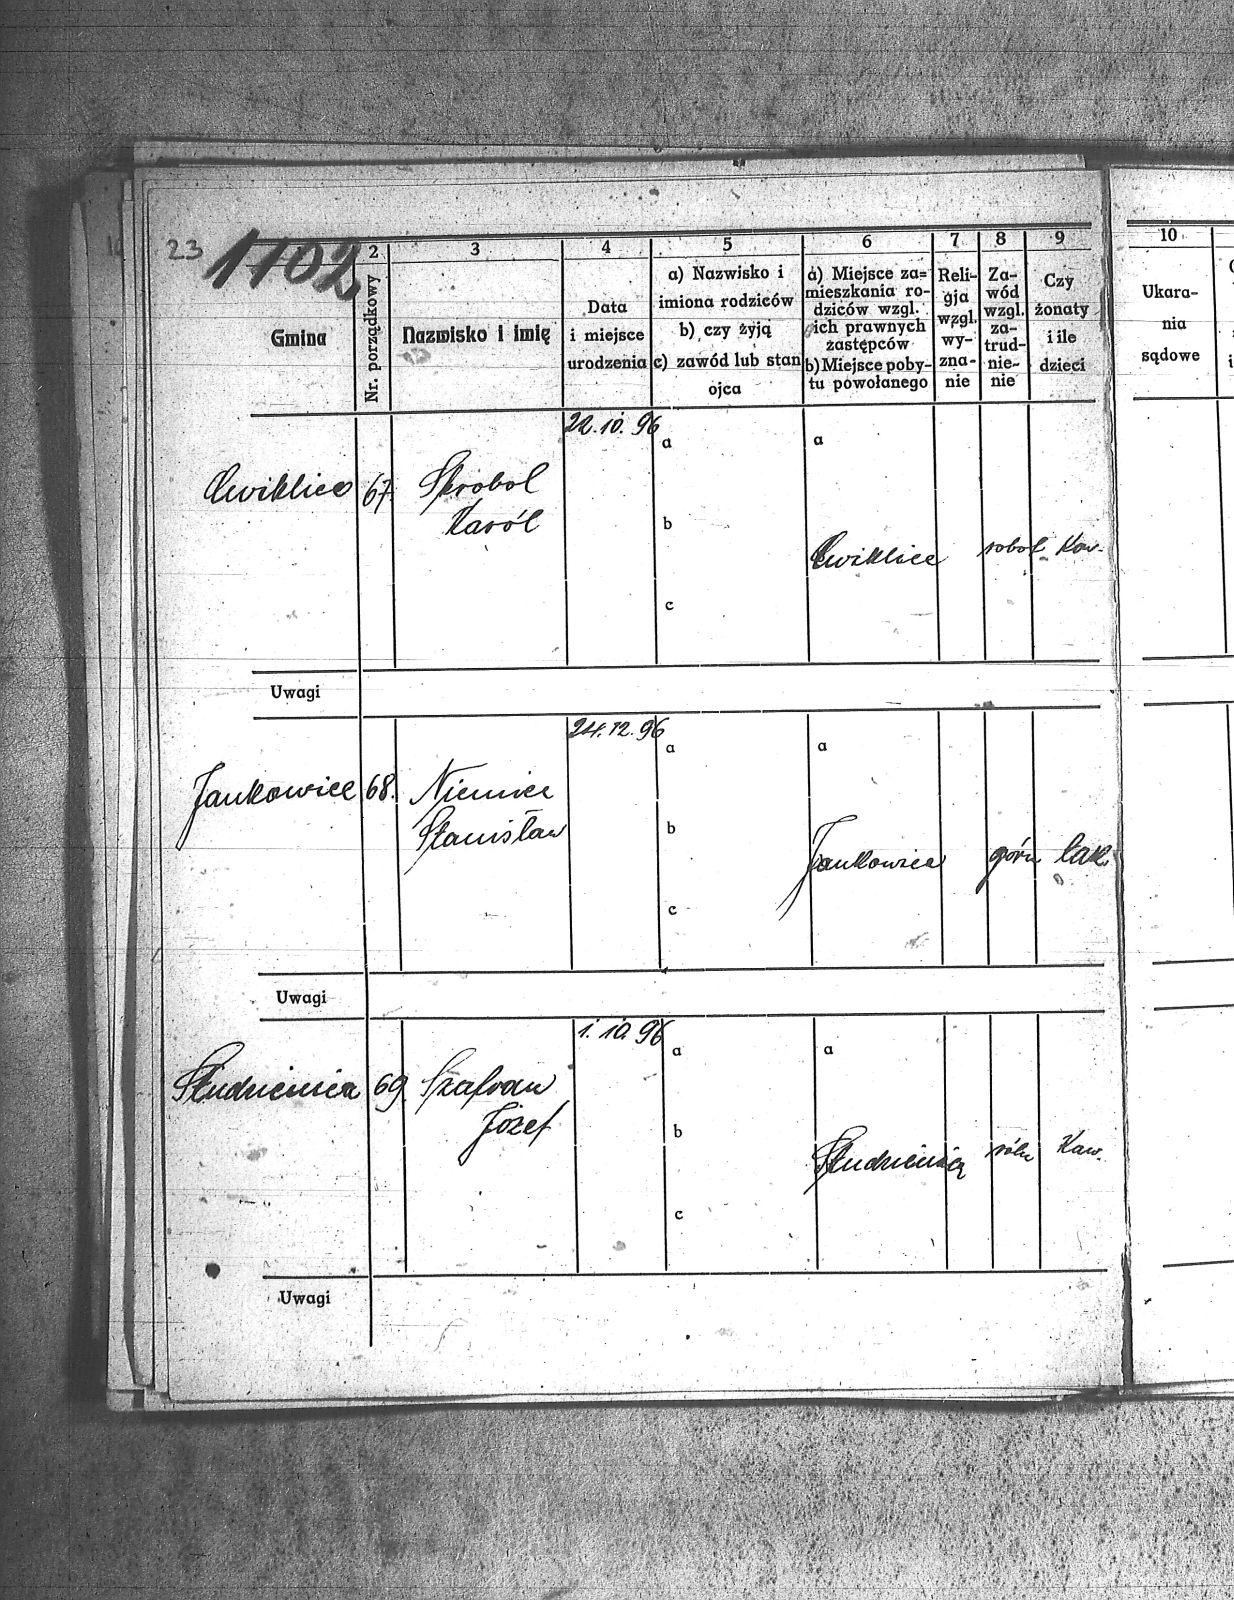 23 1102
2 3 4 5 6 7 8 9 10
Gmina
Nr. porządkowy
Nazwisko i imię
Data
i miejsce
urodzenia
a) Nazwisko i
imiona rodziców
b) czy żyją
c) zawód lub stan
ojca
a) Miejsce za=
mieszkania ro-
dziców wzgl.
ich prawnych
zastępców
b) Miejsce poby-
tu powołanego
Reli-
gja
wzgl.
wy-
zna-
nie
Za-
wód
wzgl.
za-
trud-
nie-
nie
Czy
żonaty
i ile
dzieci
Ukara-
nia
sądowe
22.10.96
a a
Cwiklice 67 Skrobol
Karól
b
Cwiklice robot Kaw.
c
Uwagi
24.12.96
a a
Jankowice 68. Niemiec
Stanisław
b
Jankowice górn
c
Uwagi
1.10 96
a a
Studzienica 69. Szafran
Józef
b
Studzienica róln Kaw.
c
Uwagi